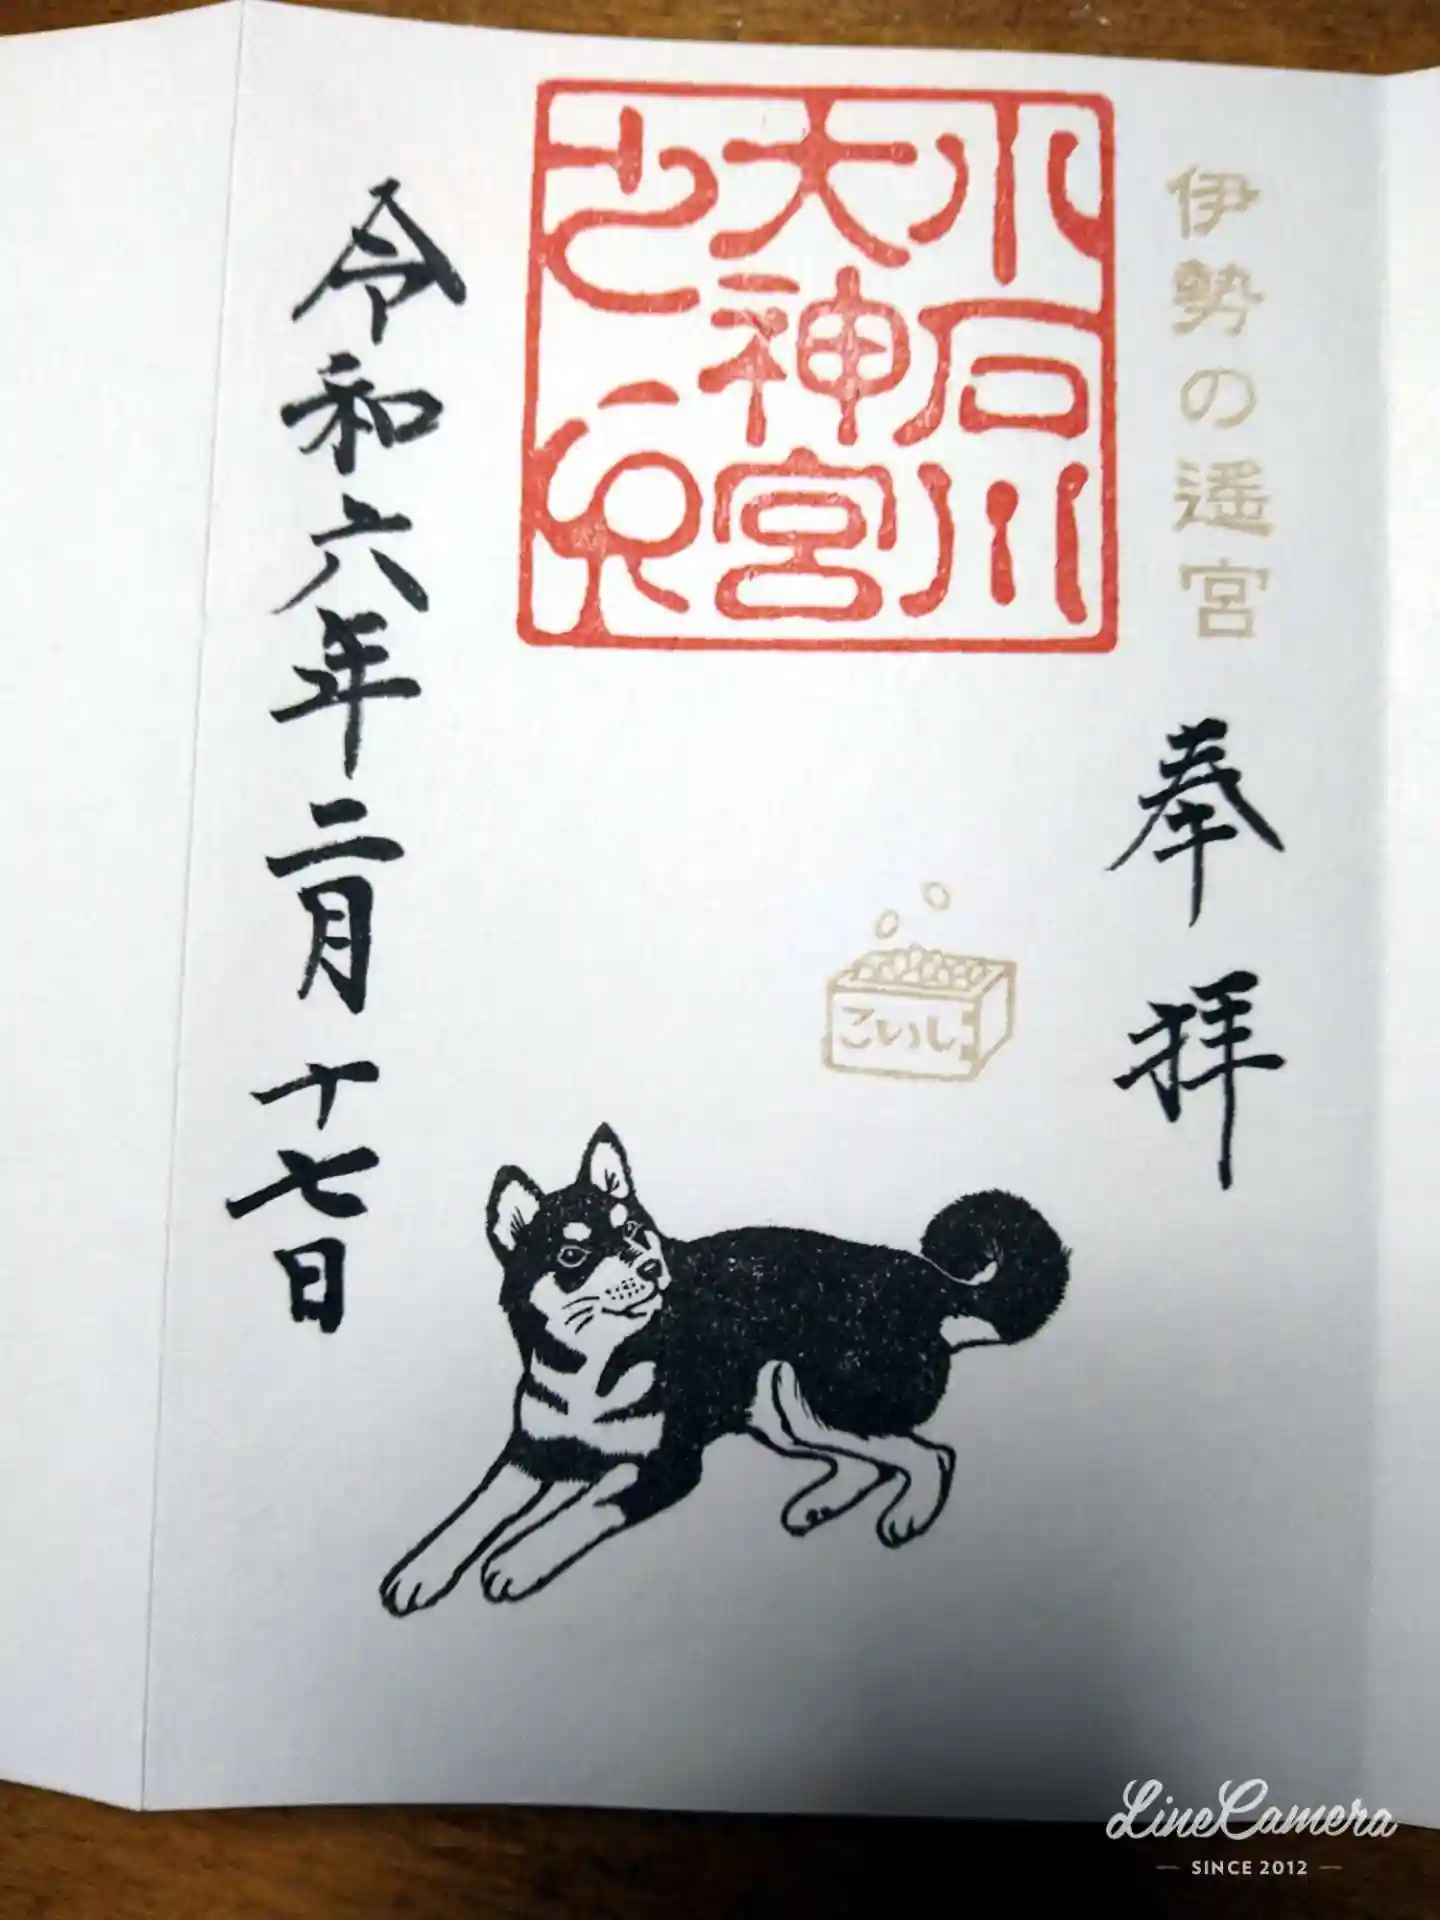 伊勢の遥宮
奉拝
小石川
大神宮
之印
こいし
令和六年二月十七日
LineCamera
SINCE 2012